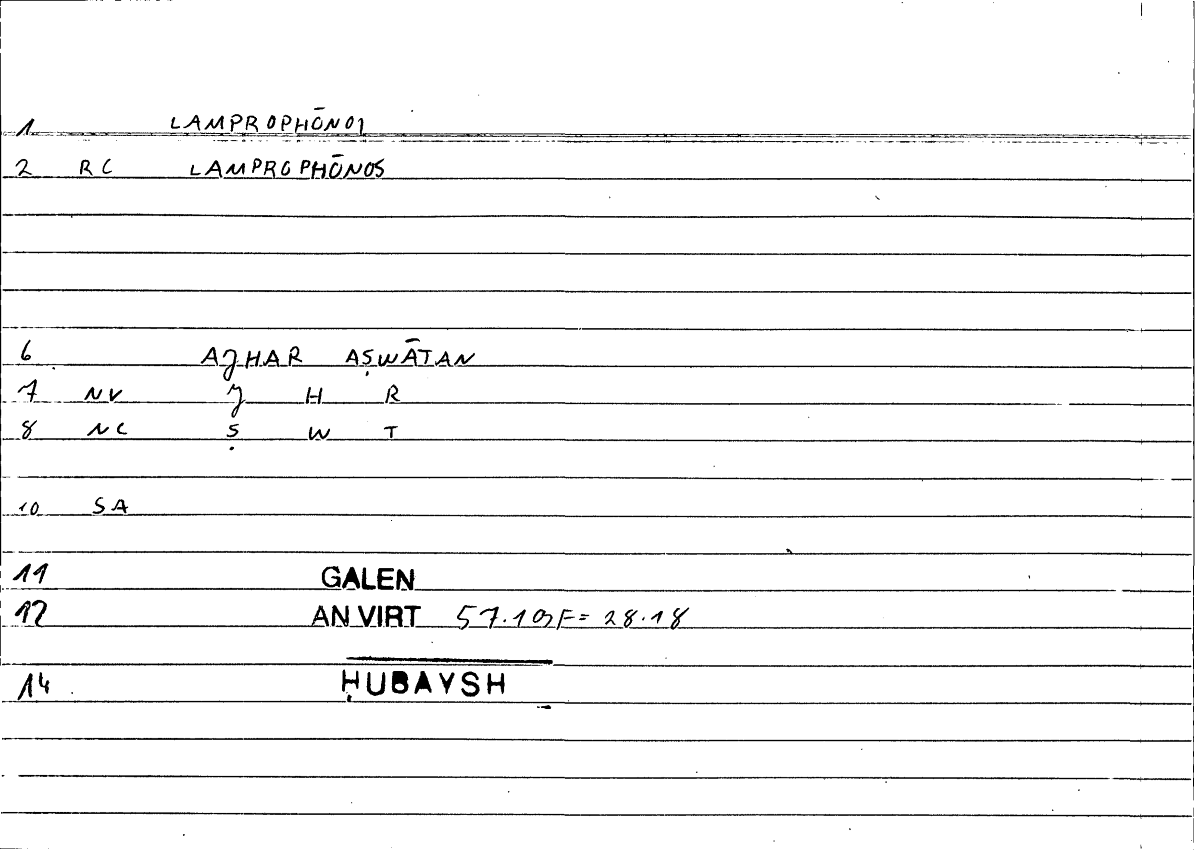 1 LAMPROPHŌNOI
2 RC LAMPROPHŌNOS
6 AJHAR AṢWĀTAN
7 NV J H R
8 NC Ṣ W T
10 SA
11 GALEN
12 AN VIRT = 28.18
14 ḤUBAYSH